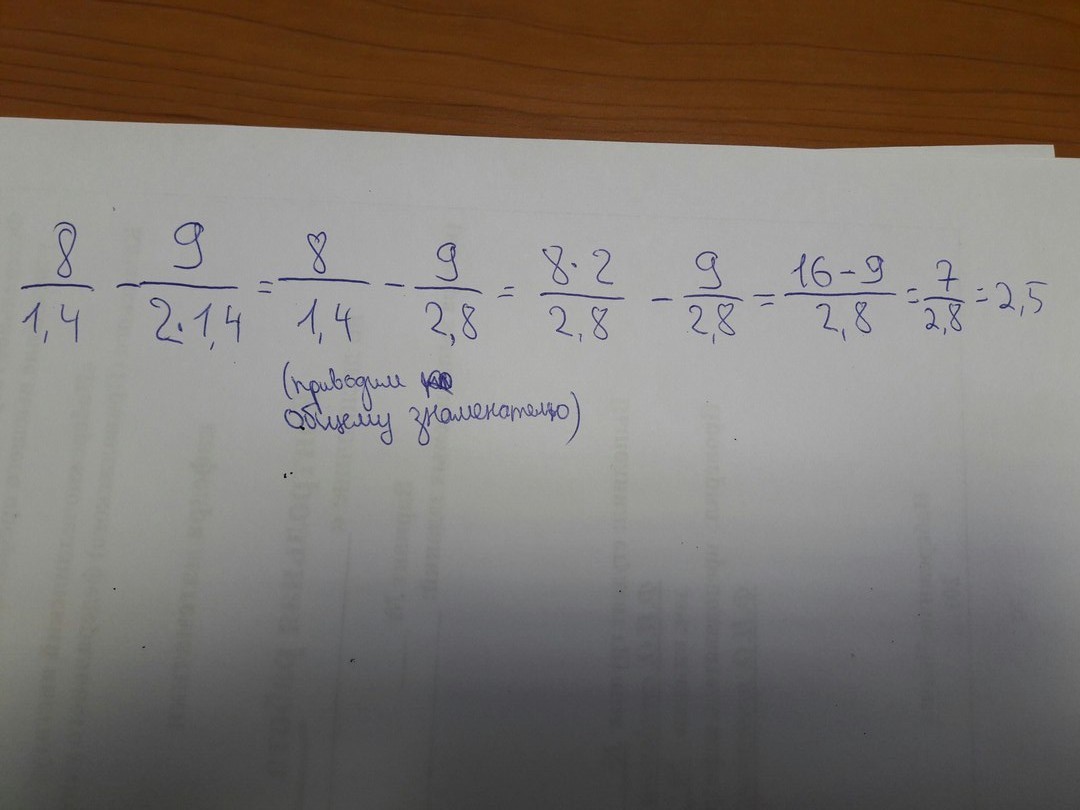 8/1,4 - 9/2·1,4 = 8/1,4 - 9/2,8 = 8·2/2,8 - 9/2,8 = 16-9/2,8 = 7/2,8 = 2,5
(приводим
общему знаменателю)